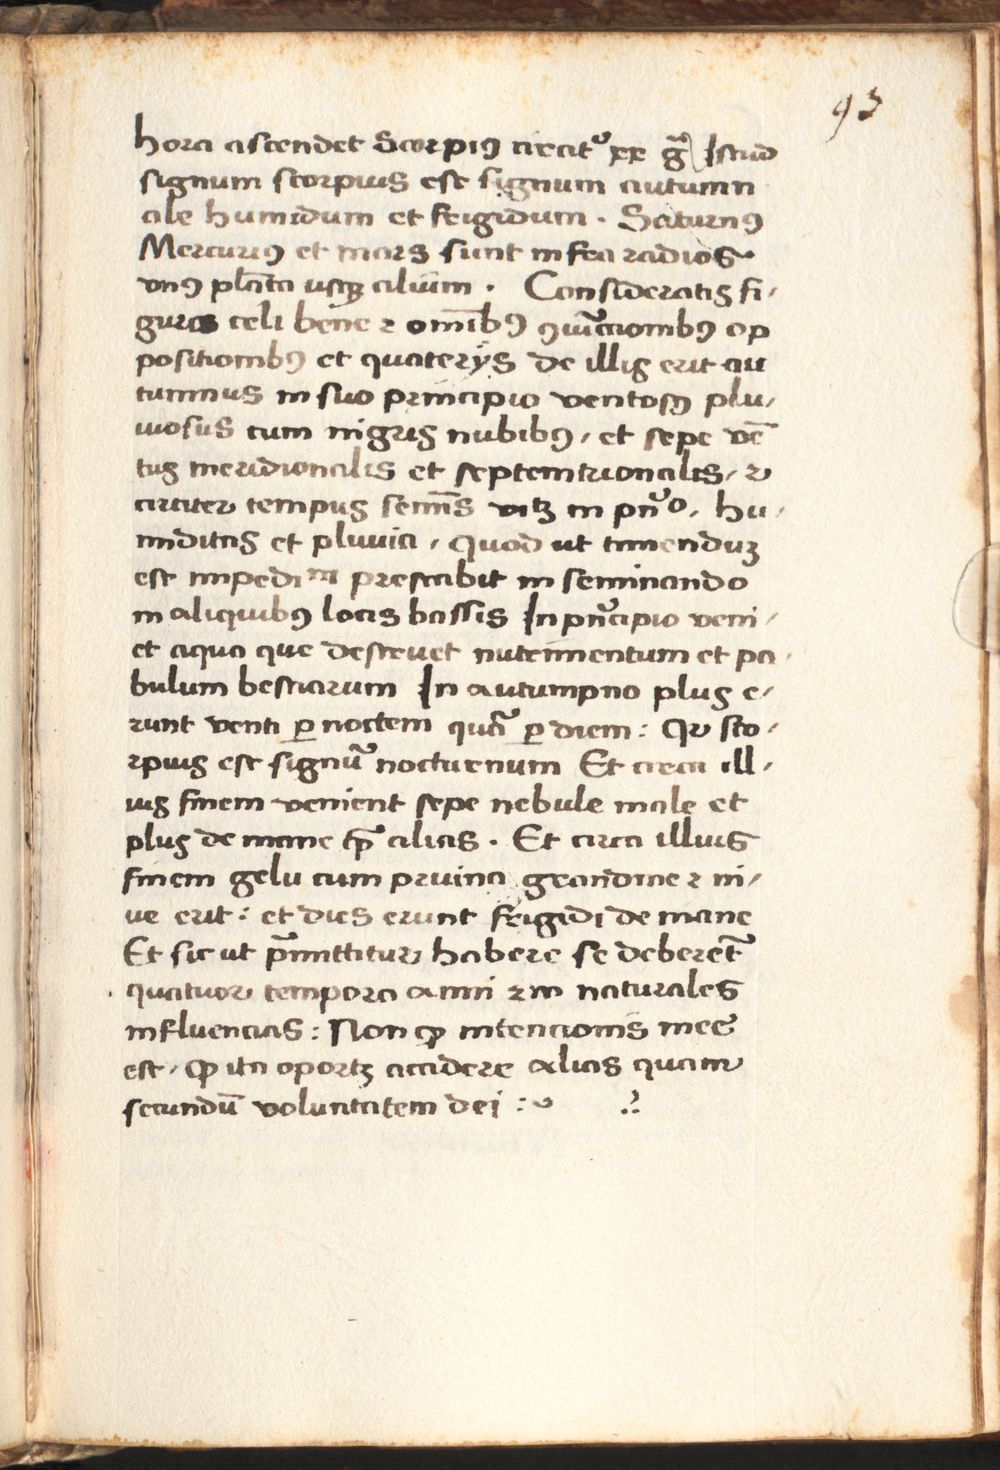 93
hora ascendet Scorpiꝰ circit᷑ xx g᷑ Istud
signum scorpius est signum autumn
ale humidum et frigidum . Saturnꝰ
Mercuriꝰ et mars sunt infra radios .
vnꝰ plāta usqꝫ alium . Consideratis fi/
guras celi bene ⁊ om̄ibꝰ ꝯiūctionibꝰ op
positionibꝰ et quaterijs de illis erit au
tumnus in suo principio ventosꝰ plu/
uiosus cum nigris nubibꝰ / et sepe vē
tus meridionalis et septemtrionalis / ⁊
circiter tempus sem̄is vitꝫ in pn᷑o / hu/
miditas et pluuia / Quod ut timenduꝫ
est impedim prestabit in seminando
in aliquibꝰ locis bassis In pn᷑cipio veni/
et aqua que destruet nutrimentum et pa/
bulum bestiarum In autumpno plus e/
runt venti ꝑ noctem quā ꝑ diem : Qr sco/
rpius est signū nocturnum Et circa ill/
ius finem venient sepe nebule male et
plus de mane tp̄ alias . Et circa illius
finem gelu cum pruina grandine ⁊ ni/
ue erit : et dies erunt frigidi de mane
Et sic ut p̄mittitur habere se deberēt
quatuor tempora anni ⁊m naturales
influencias : Non ꝙ intencionis mee
est / Qp ita oportꝫ accidere alias quam
secundū voluntatem dei :